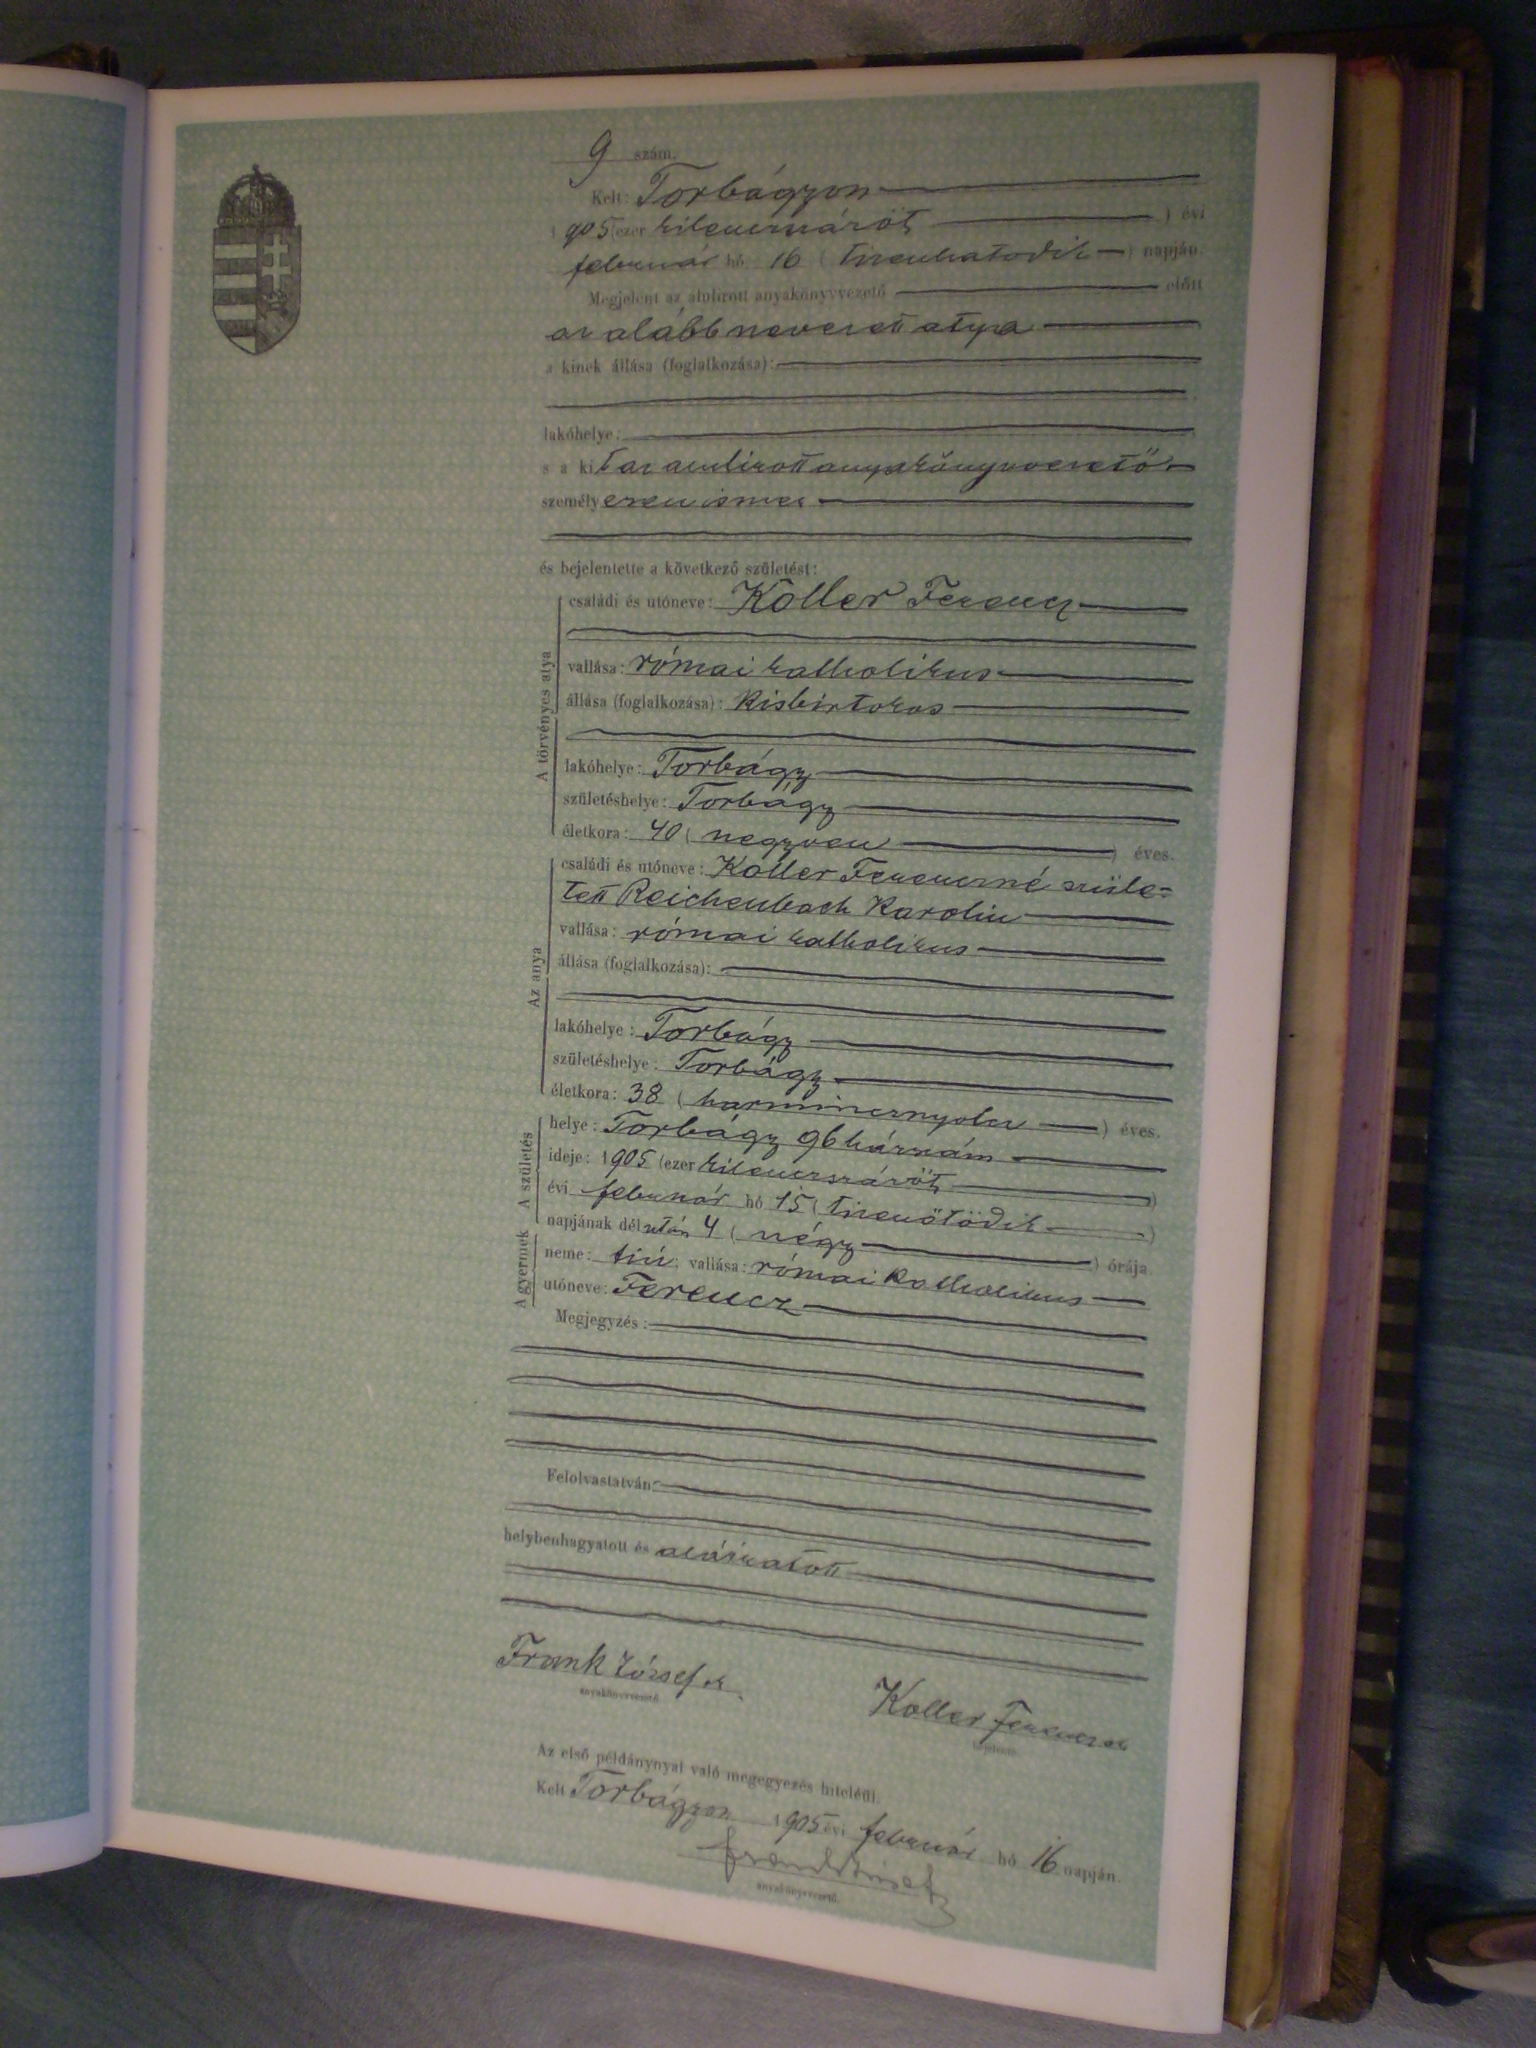 9 szám.
Kelt: Torbágyon
1905 (ezer kilencszázöt ) évi
február hó 16 ( tizenhatodik ) napján.
Megjelent az alulirott anyakönyvvezető előtt
az alább nevezett atya
a kinek állása (foglalkozása):
lakóhelye:
s a kit az alulirott anyakönyvvezető
személyesen ismer
és bejelentette a következő születést:
A törvényes atya
családi és utóneve: Koller Ferencz
vallása: római katholikus
állása (foglalkozása): Kisbirtokos
lakóhelye: Torbágy
születéshelye: Torbágy
életkora: 40 ( negyven ) éves.
Az anya
családi és utóneve: Koller Ferenczné szüle-
tett Reichenbach Karolin
vallása: római katholikus
állása (foglalkozása):
lakóhelye: Torbágy
születéshelye: Torbágy
életkora: 38 ( harmincznyolcz ) éves.
A születés
helye: Torbágy 96 házszám
ideje: 1905 (ezer kilenczszázöt )
évi február hó 15 ( tizenötödik )
napjának délután 4 ( négy ) órája.
A gyermek
neme: fiú; vallása: római Katholikus
utóneve: Ferencz
Megjegyzés:
Felolvastatván:
helybenhagyatott és aláiratott
Frank József sk.
anyakönyvvezető.
Koller Ferencz sk
bejelentő.
Az első példánynyal való megegyezés hiteléül.
Kelt Torbágyon 1905 évi február hó 16 napján.
Frank József
anyakönyvvezető.